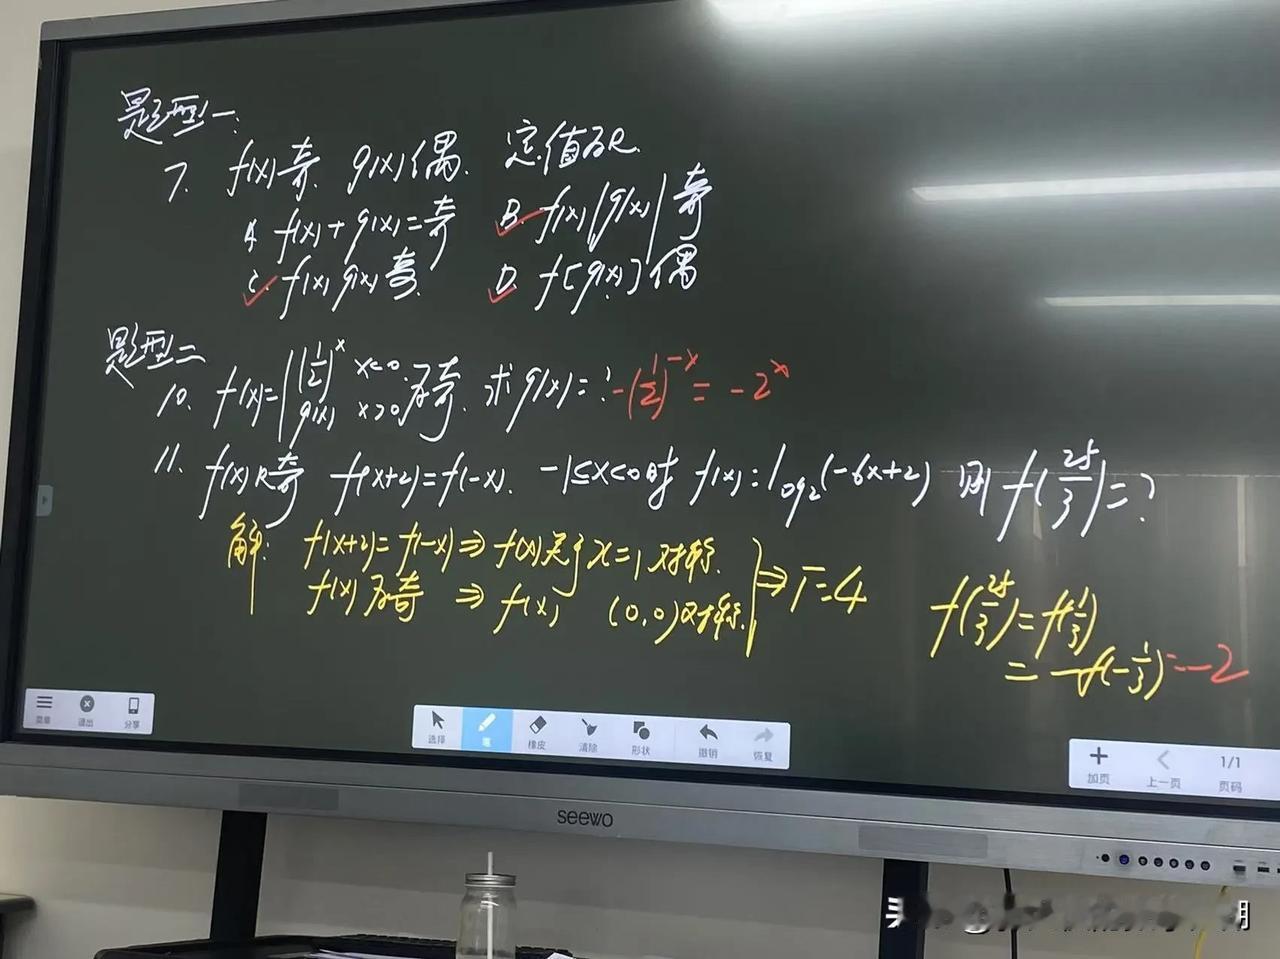 题型一:
7. f(x)奇. g(x)偶. 定值为R.
A f(x)+g(x)=奇 B. f(x)|g(x)|奇
C. f(x)g(x)奇. D. f[g(x)]偶
题型二
10. f(x)={(1/2)^x x<0. g(x) x>0 为奇. 求g(x)=? -(1/2)^-x = -2^x
11. f(x)R奇 f(x+2)=f(-x). -1≤x<0时 f(x)=log2(-6x+2) 则f(25/3)=?
解: f(x+2)=f(-x)⇒f(x)关于x=1对称.
f(x)为奇 ⇒ f(x) (0,0)对称. ⇒T=4
f(25/3)=f(1/3)
=-f(-1/3)=-2
菜单 退出 分享
选择 笔 橡皮 清除 形状 撤销 恢复
加页 上一页 1/1 页码
seewo